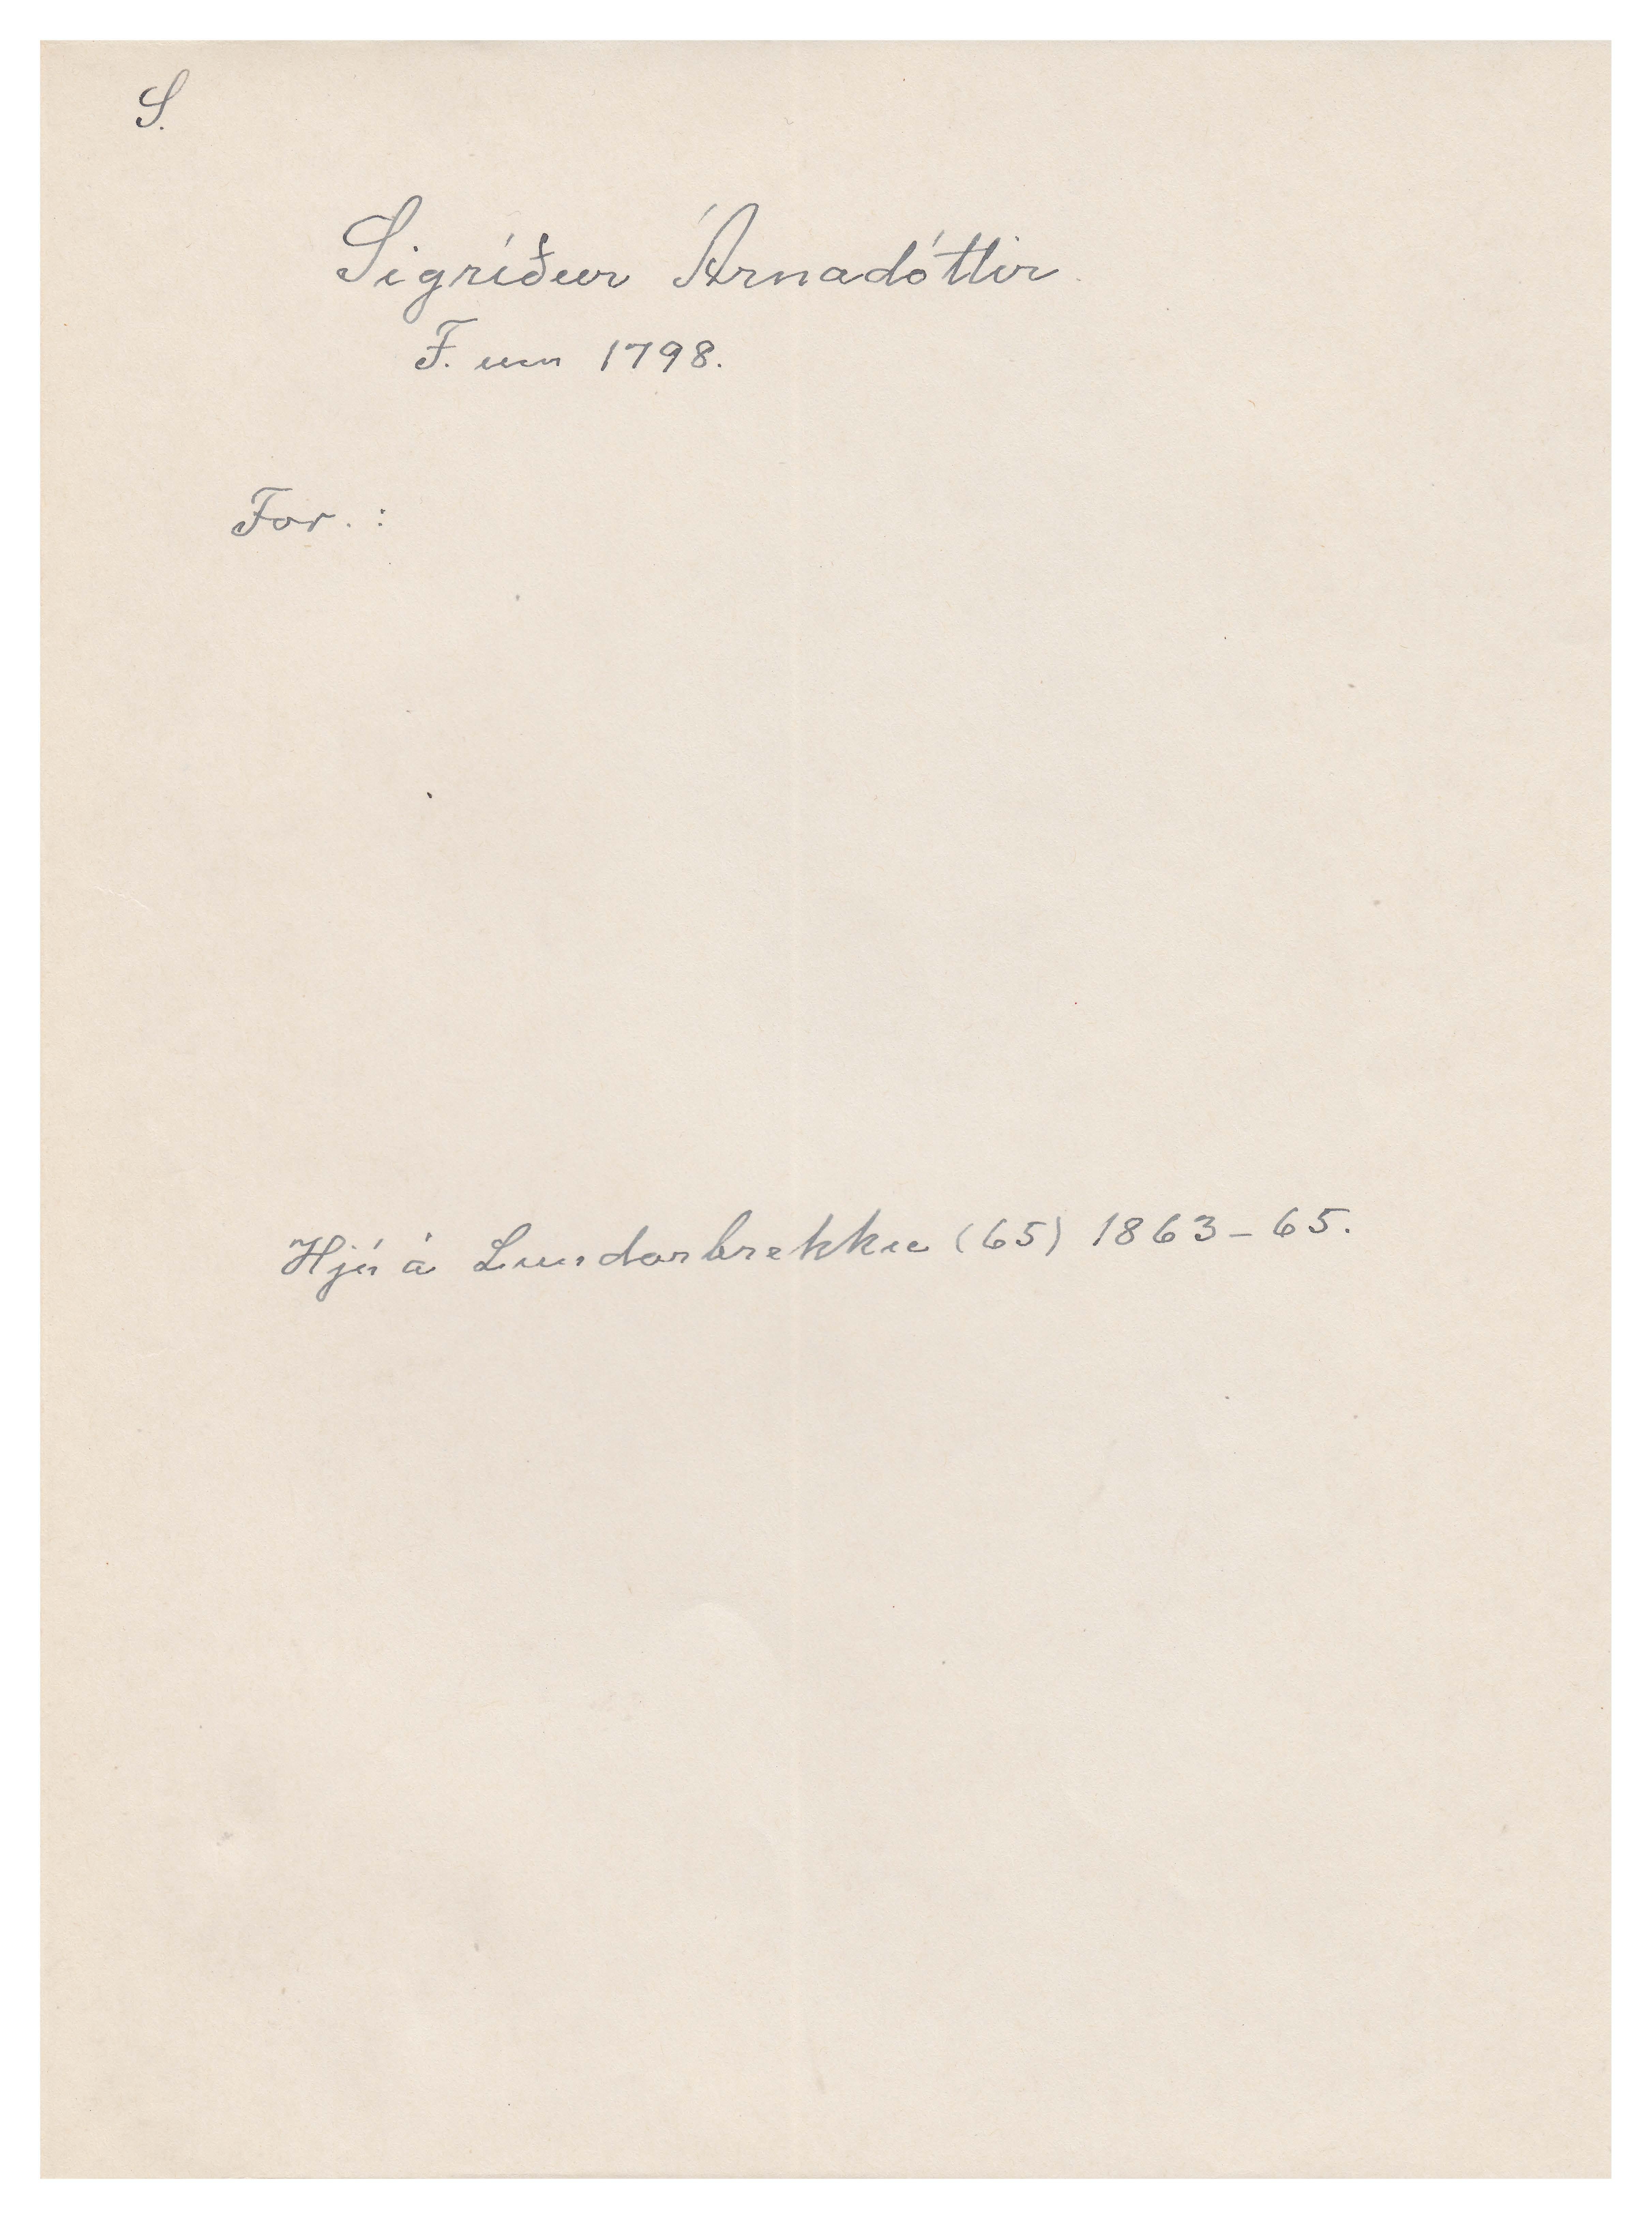 S.
Sigríður Árnadóttir.
F. um 1798.
For. :
Hjú á Lundarbrekku (65) 1863-65.